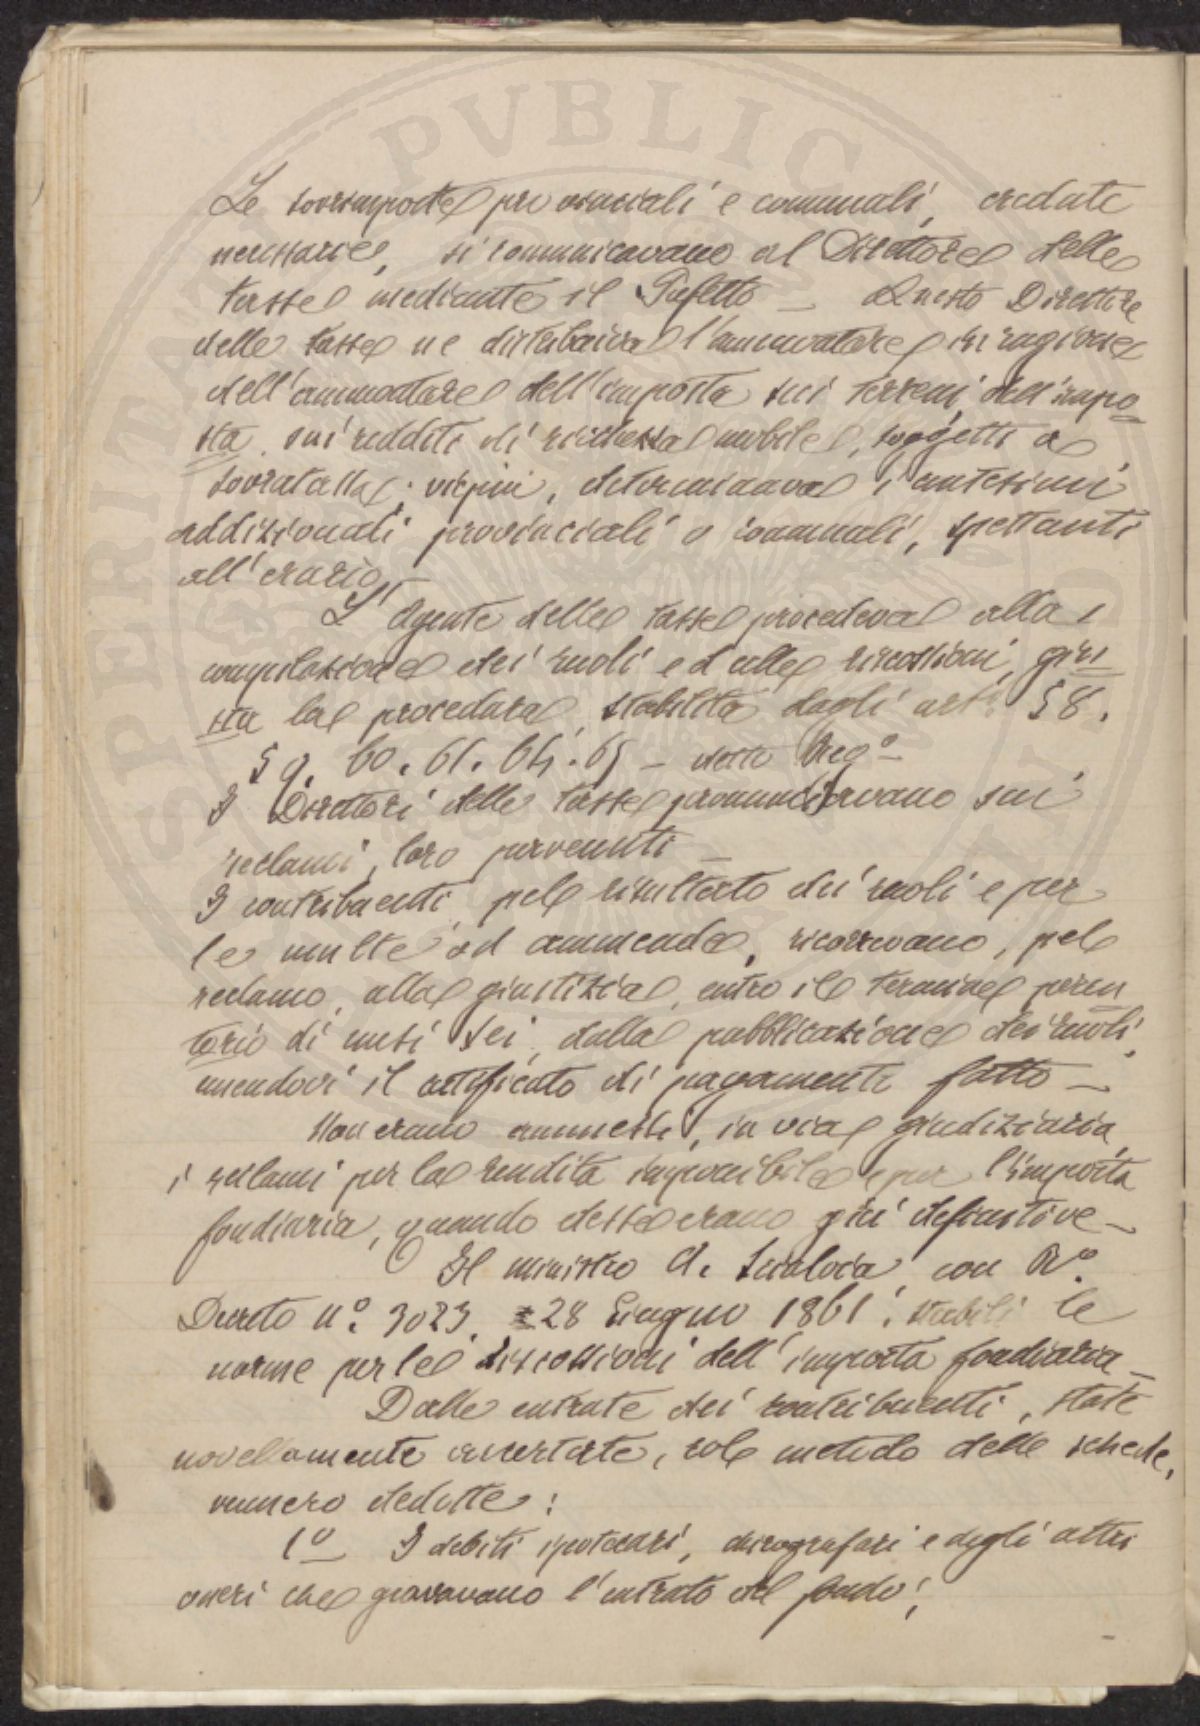 PERITATI PVBLIC
Le sovrimposte provinciali e comunali, credute
necessarie, si comunicavano al Direttore delle
tasse mediante il Prefetto — Questo Direttore
delle tasse ne distribuiva l'ammontare in ragione
dell'ammontare dell'imposta sui terreni, dell'impo-
sta sui redditi di ricchezza mobile, soggetti a
sovratassa; determinava i centesimi
addizionali provinciali o comunali, spettanti
all'erario
L'Agente delle tasse procedeva alla
compilazione dei ruoli ed alle riscossioni, giu
sta la procedura stabilita dagli arti 58.
59. 60. 61. 64. 65 — detto Rego —
I Direttori delle tasse pronunciavano sui
reclami loro pervenuti —
I contribuenti pel risultato dei ruoli e per
le multe od ammende, ricorrevano, pel
reclamo, alla giustizia, entro il termine peren
torio di mesi sei, dalla pubblicazione dei ruoli
unendovi il certificato di pagamento fatto —
Non erano ammessi, in via giudiziaria
i reclami per la rendita imponibile e per l'imposta
fondiaria, quando desse erano già definitive —
Il ministro A. Scialoia con Ro.
Decreto no. 3023. 28 Giugno 1861: stabilì le
norme per le riscossioni dell'imposta fondiaria —
Dalle entrate dei contribuenti, state
novellamente accertate, col metodo delle schede,
vennero dedotte:
1o I debiti ipotecari, chirografari e degli altri
oneri che gravavano l'entrata del fondo;